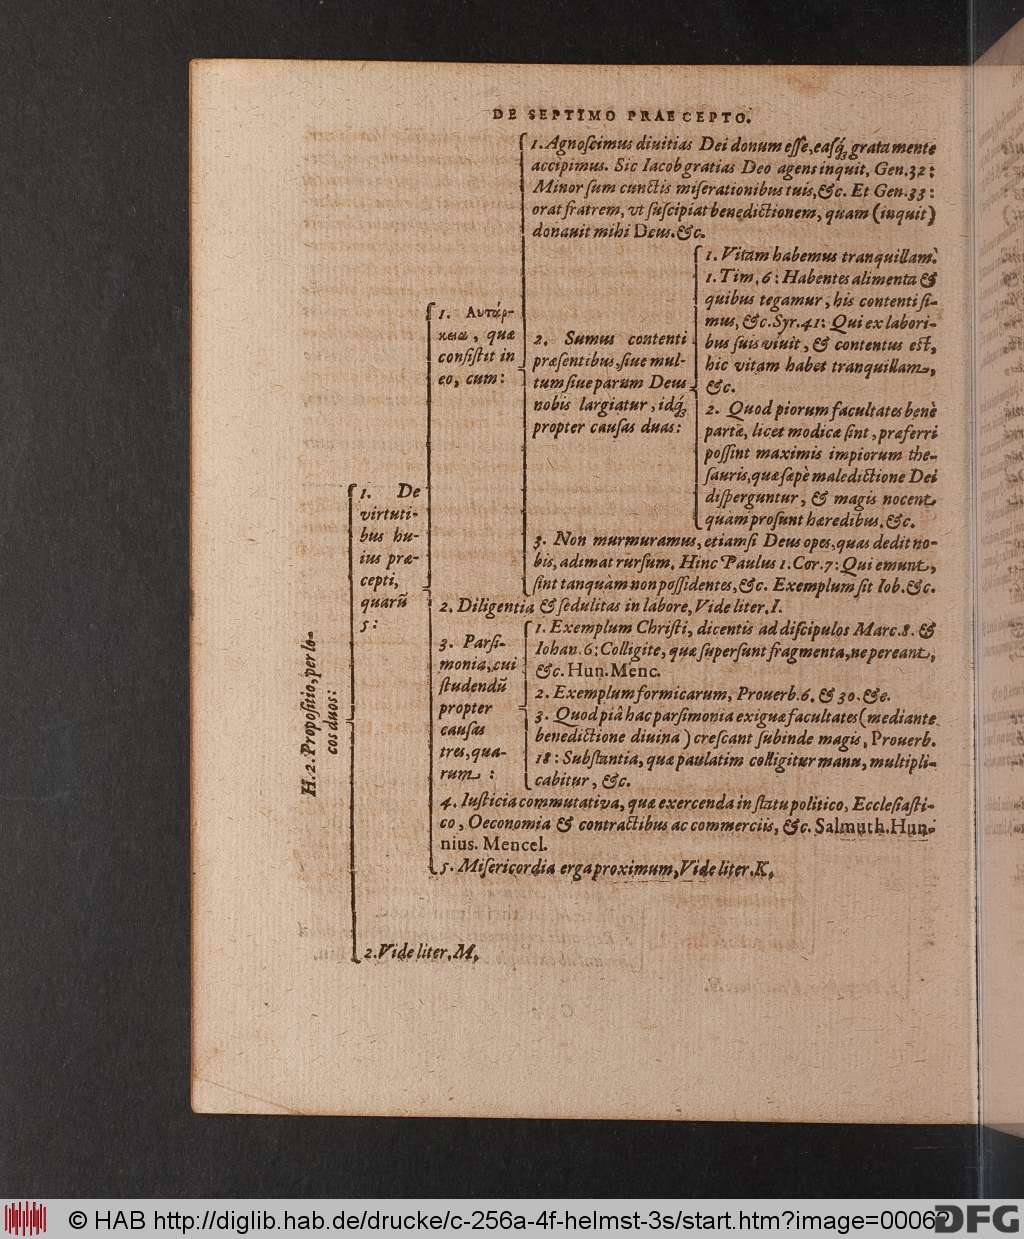 DE SEPTIMO PRAECEPTO.
H. 2. Propositio, per lo-
cos duos:
1. De
virtuti-
bus hu-
ius præ-
cepti,
quarũ
5:
1. Αυτάρ-
κεια, quæ
consistit in
eo, cum:
1. Agnoscimus diuitias Dei donum esse, easq́; grata mente
accipimus. Sic Iacob gratias Deo agens inquit, Gen. 32:
Minor sum cunctis miserationibus tuis, &c. Et Gen. 33:
orat fratrem, vt suscipiat benedictionem, quam (inquit)
donauit mihi Deus. &c.
2. Sumus contenti
præsentibus, siue mul-
tum siue parum Deus
nobis largiatur, idq́;
propter causas duas:
1. Vitam habemus tranquillam.
1. Tim. 6: Habentes alimenta &
quibus tegamur, his contenti si-
mus, &c. Syr. 41: Qui ex labori-
bus suis viuit, & contentus est,
hic vitam habet tranquillam,
&c.
2. Quod piorum facultates benè
partæ, licet modicæ sint, præferri
possint maximis impiorum the-
sauris, quæ sæpè maledictione Dei
disperguntur, & magis nocent
quàm prosunt hæredibus, &c.
3. Non murmuramus, etiamsi Deus opes, quas dedit no-
bis, adimat rursum. Hinc Paulus 1. Cor. 7: Qui emunt,
sint tanquàm non possidentes, &c. Exemplum sit Iob. &c.
2. Diligentia & sedulitas in labore, Vide liter. I.
3. Parsi-
monia, cui
studendũ
propter
causas
tres, qua-
rum :
1. Exemplum Christi, dicentis ad discipulos Marc. 8. &
Iohan. 6: Colligite, quæ supersunt fragmenta, ne pereant,
&c. Hun. Menc.
2. Exemplum formicarum, Prouerb. 6. & 30. &c.
3. Quod piâ hac parsimonia exiguæ facultates (mediante
benedictione diuina) crescant subinde magis, Prouerb.
18: Substantia, quæ paulatim colligitur manu, multipli-
cabitur, &c.
4. Iusticia commutativa, quæ exercenda in statu politico, Ecclesiasti-
co, Oeconomia & contractibus ac commerciis, &c. Salmuth. Hun-
nius. Mencel.
5. Misericordia erga proximum, Vide liter. K.
2. Vide liter. M.
© HAB http://diglib.hab.de/drucke/c-256a-4f-helmst-3s/start.htm?image=00062
DFG